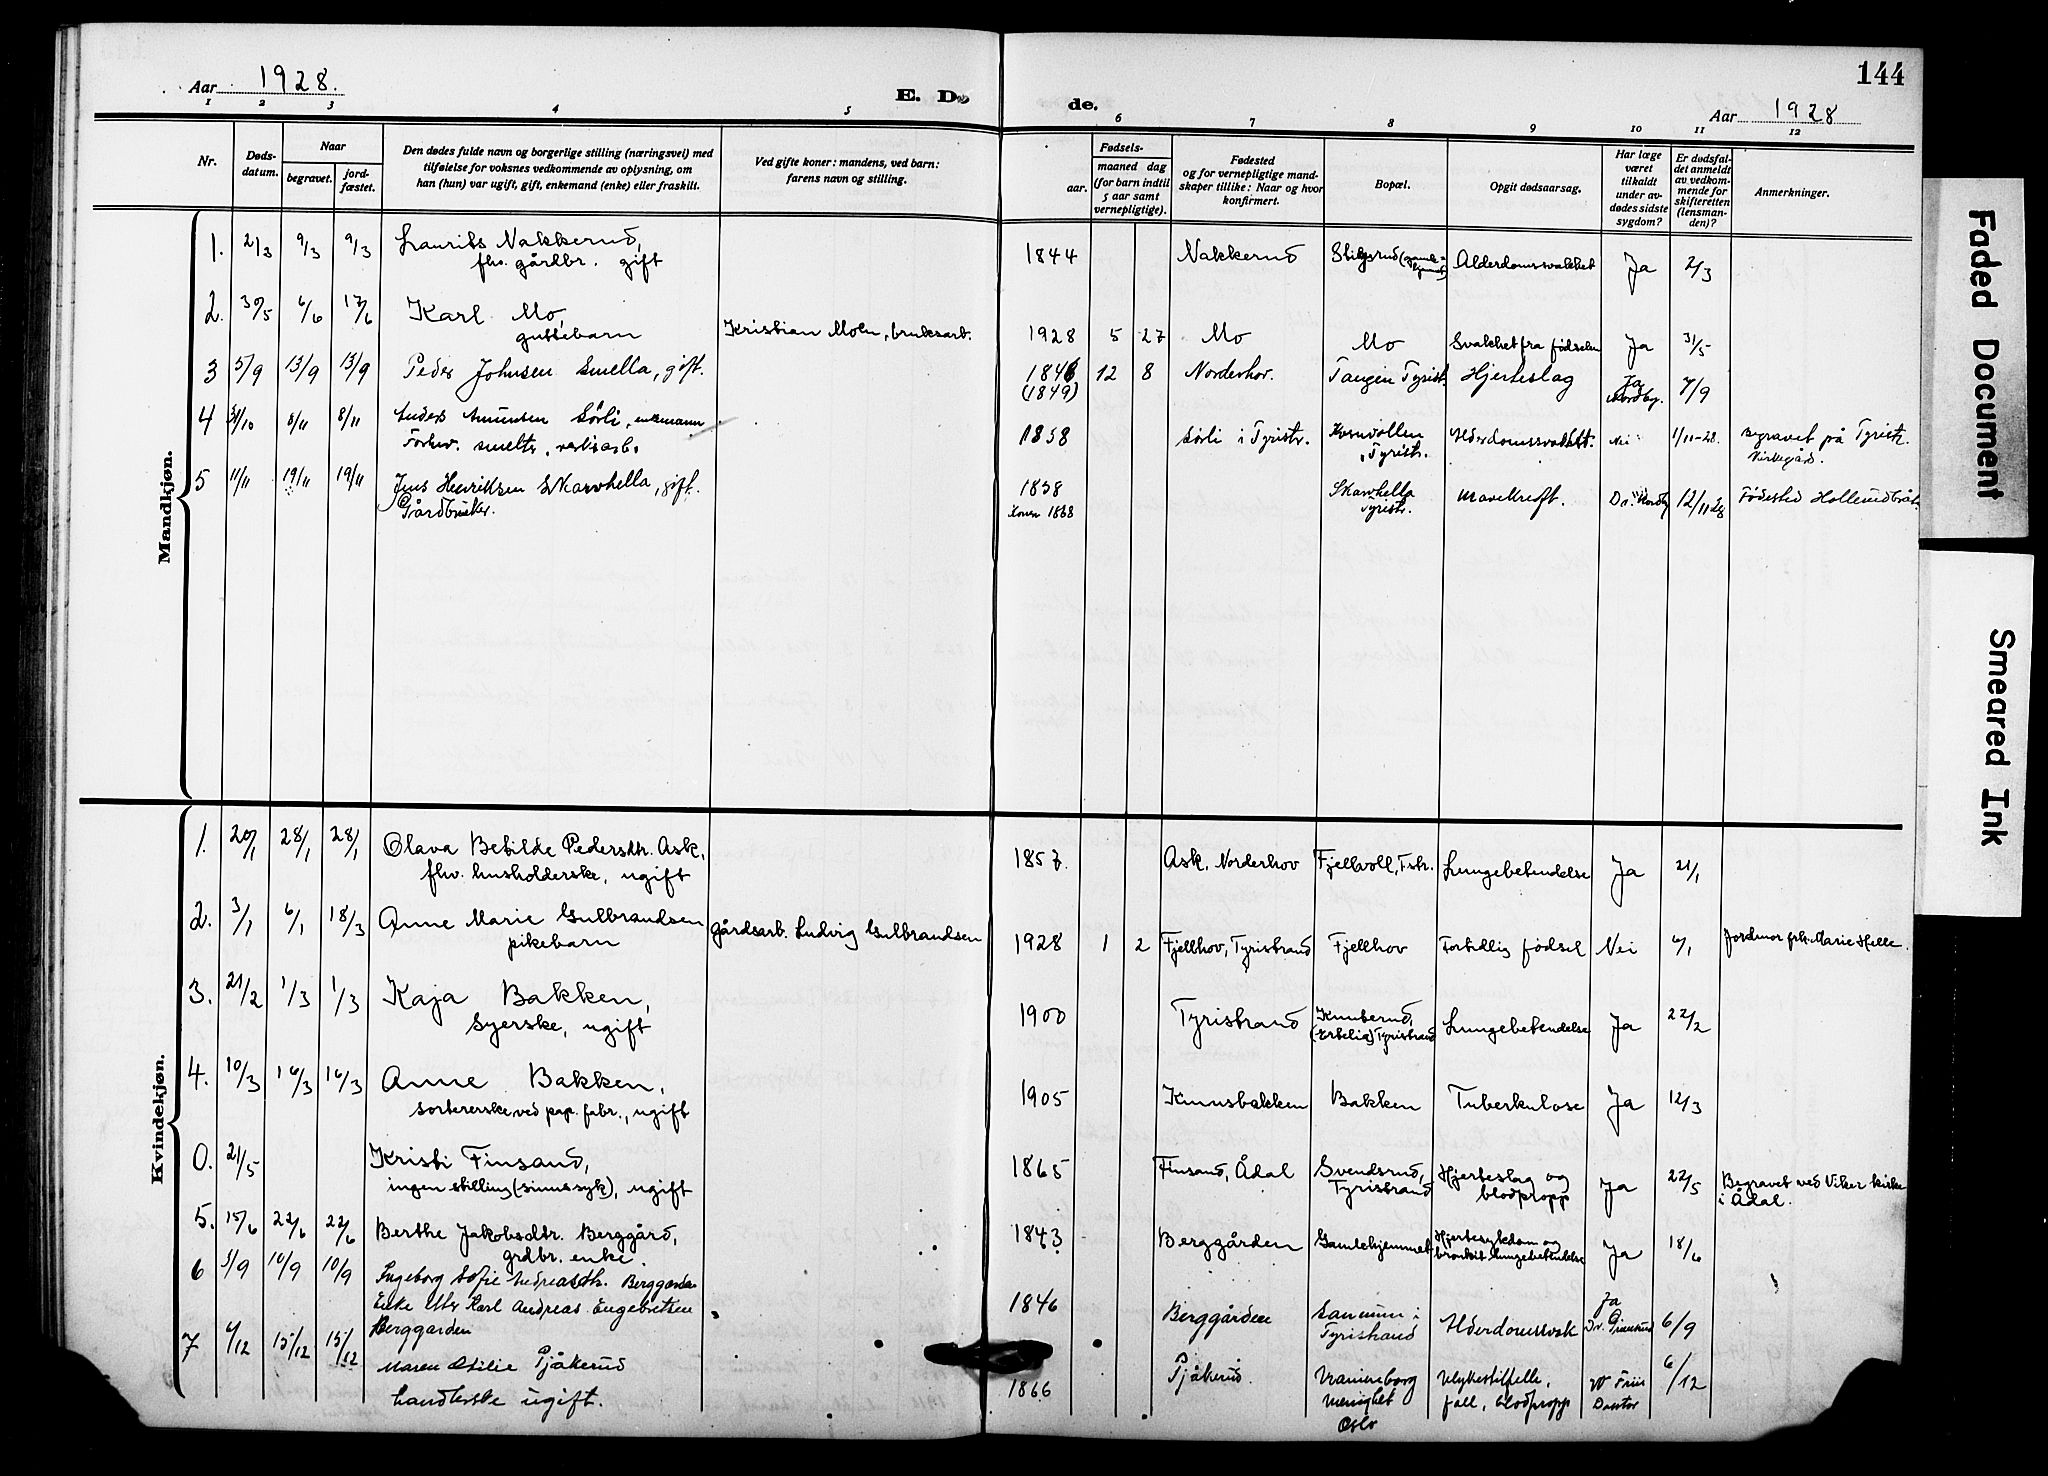 144
Aar 1928.
E. Dø
de.
Aar 1928
1 2 3 4 5 6 7 8 9 10 11 12
Nr.
Døds-
datum.
Naar
begravet.
jord-
fæstet.
Den dødes fulde navn og borgerlige stilling (næringsvei) med
tilføielse for voksnes vedkommende av oplysning, om
han (hun) var ugift, gift, enkemand (enke) eller fraskilt.
Ved gifte koner: mandens, ved barn:
farens navn og stilling.
Fødsels-
aar.
maaned dag
(for barn indtil
5 aar samt
vernepligtige).
Fødested
og for vernepligtige mand-
skaper tillike: Naar og hvor
konfirmert.
Bopæl.
Opgit dødsaarsag.
Har læge
været
tilkaldt
under av-
dødes sidste
sygdom?
Er dødsfal-
det anmeldt
av vedkom-
mende for
skifteretten
(lensman-
den)?
Anmerkninger.
Mandkjøn.
1. 2/3 9/3 9/3 Laurits Nakkerud, 1844 Nakkerud Alderdomssvakhet Ja 2/3
fhv. gårdbr. gift
2. 30/5 6/6 17/6 Karl Mo, Kristian Moen, bruksarb. 1928 5 27 Mo Mo Svakhet fra fødselen Ja 31/5
guttebarn
3 5/9 13/9 13/9 Peder Johnsen Smella, gift. 1846 12 8 Norderhov. Tangen Tyristr. Hjerteslag Ja 7/9
(1849) Nordby.
4 31/10 8/11 8/11 Anders Amundsen Sørli, enkemann 1858 Sørli i Tyristr. Kornvollen Alderdomssvakhet. Nei 1/11-28. Begravet på Tyristr.
Forhv. smelteverksarb. Tyristr. Kirkegård.
5 11/11 19/11 19/11 Jens Henriksen Skarvhella, gift. 1858 Skarvhella Mavekreft. Dr. Nordby 12/11 28 Fødested Hollerudbråt.
Gårdbruker. Konen 1868 Tyristr.
Kvindekjøn.
1. 20/1 28/1 28/1 Olava Betilde Pedersdtr. Ask, 1857. Ask, Norderhov Fjellvoll, Tstr. Lungebetendelse Ja 21/1
fhv. husholderske, ugift
2. 3/1 6/1 18/3 Anne Marie Gulbrandsen gårdsarb. Ludvig Gulbrandsen 1928 1 2 Fjellhov, Tyristrand Fjellhov Fortidlig fødsel Nei 4/1 Jordmor frk. Marie Helle.
pikebarn
3. 21/2 1/3 1/3 Kaja Bakken, 1900 Tyristrand Knuserud, Lungebetendelse Ja 22/2
Syerske, ugift Tyristrand
4. 10/3 16/3 16/3 Anne Bakken, 1905 Knusbakken Bakken Tuberkulose Ja 12/3
sortererske ved pap. fabr., ugift
0. 21/5 Kristi Finsand, 1865 Finsand, Ådal Svendsrud, Hjerteslag og Ja 22/5 Begravet ved Viker kirke
ingen stilling (sinnssyk), ugift Tyristrand blodpropp i Ådal.
5. 15/6 22/6 22/6 Berthe Jakobsdtr. Berggård, 1843 Berggården Gamlehjemmet Hjertesykdom og Ja 18/6
grdbr. enke. bronkit lungebetendelse
6 5/9 10/9 10/9 Ingeborg Sofie Andreasdtr. Berggården
Enke etter Karl Andreas Engebretsen 1846 Berggården i Alderdomssvak Ja 6/9
Berggården Tyristrand Dr.
7 4/12 15/12 15/12 Maren Otilie Pjåkerud 1866 Pjåkerud. Uranienborg Ulykkestilfelle, 6/12
handlerske ugift. menighet fall, blodpropp Doktor
Oslo
Faded Document
Smeared Ink